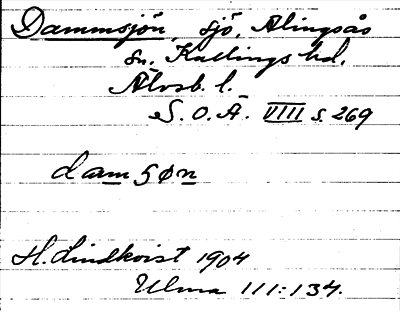 Dammsjön, sjö, Alingsås
sn. Kullings hd.
Älvsb. l.
S. O. Ä. VIIII s. 269
dam ʃøn
H. Lindkvist 1904
Ulma 111:134.